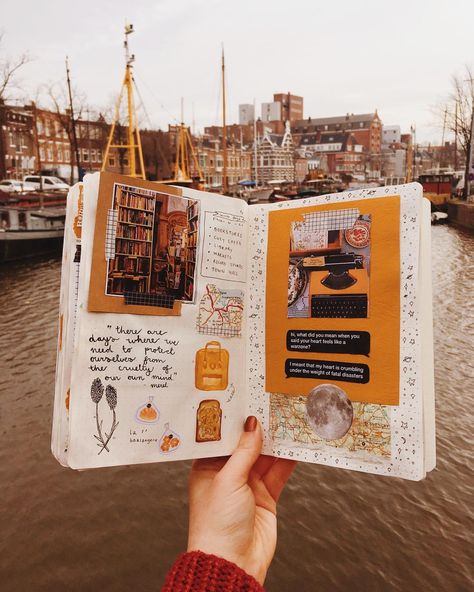 • BOOKSTORES
• CUTE CAFÉS
• TRAMS
• MARKETS
TOWN HALL
"there are
days where we
need to protect
ourselves from
the cruelty of
our own mind"
la
boulangerie
hi, what did you mean when you
said your heart feels like a
warzone?
I meant that my heart is crumbling
under the weight of fatal disasters